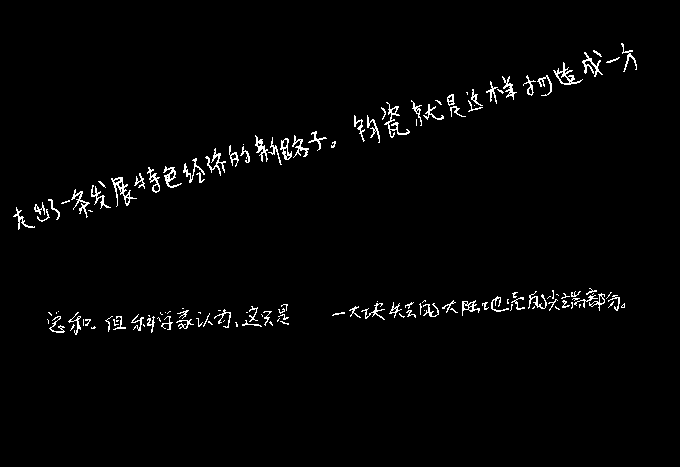 走出了一条发展特色经济的新路子。钧瓷就是这样打造成一方
总和。但科学家认为,这只是一大块失去的大陆地壳的尖端部分。